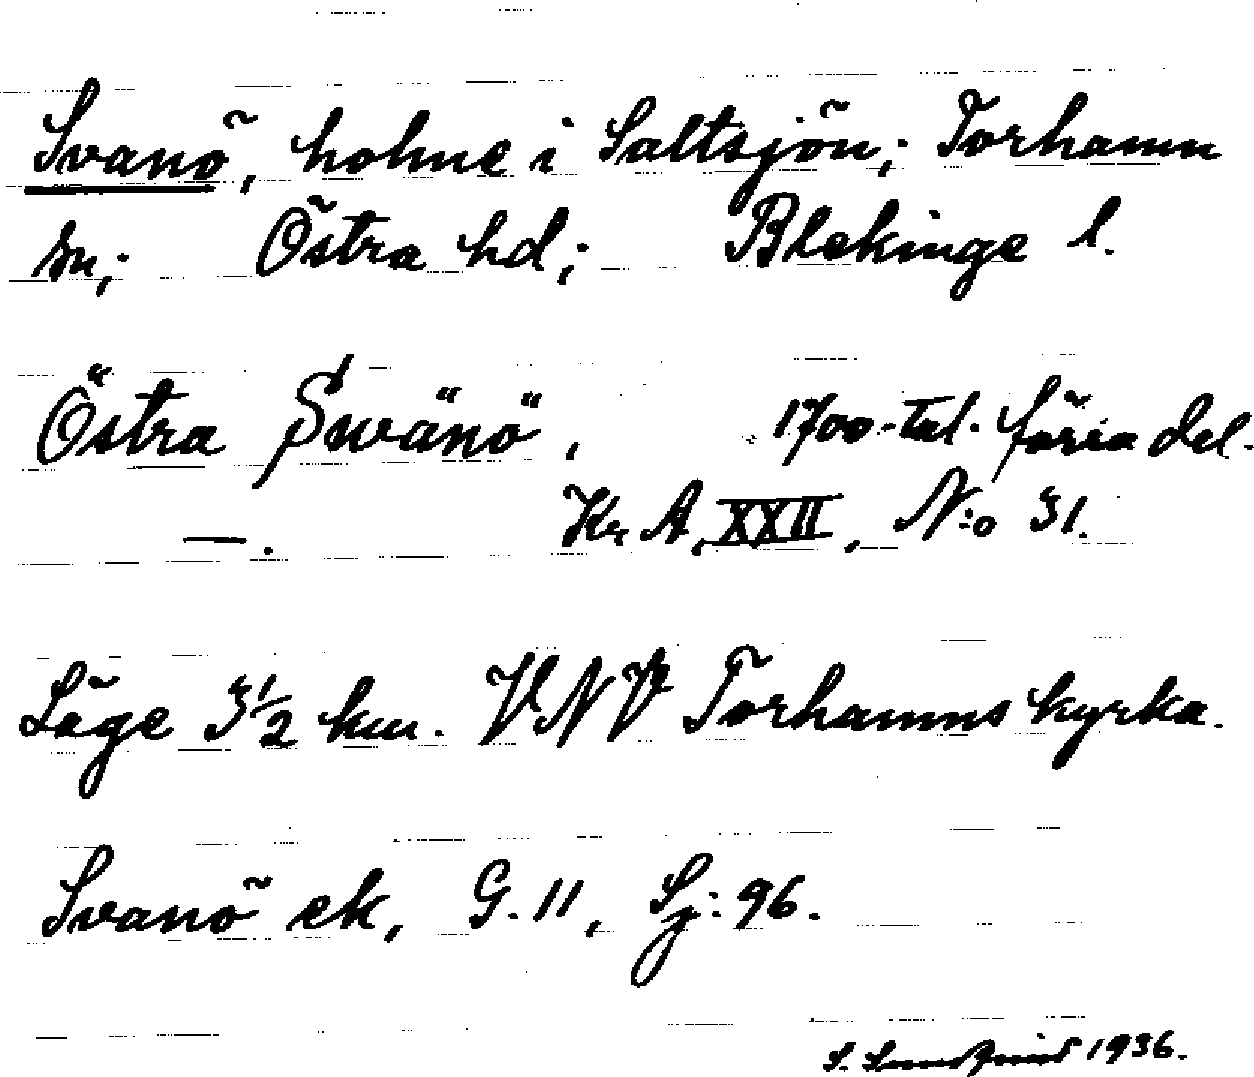 Svanö, holme i Saltsjön; Torhamn
sn; Östra hd; Blekinge l.
Östra Swänö, 1700-tal. förra del.
—. Kr. A. XXII, N:o 31.
Läge 3 1/2 km. VNV Torhamns kyrka.
Svanö ek, G. 11, Sj: 96.
S. 1936.